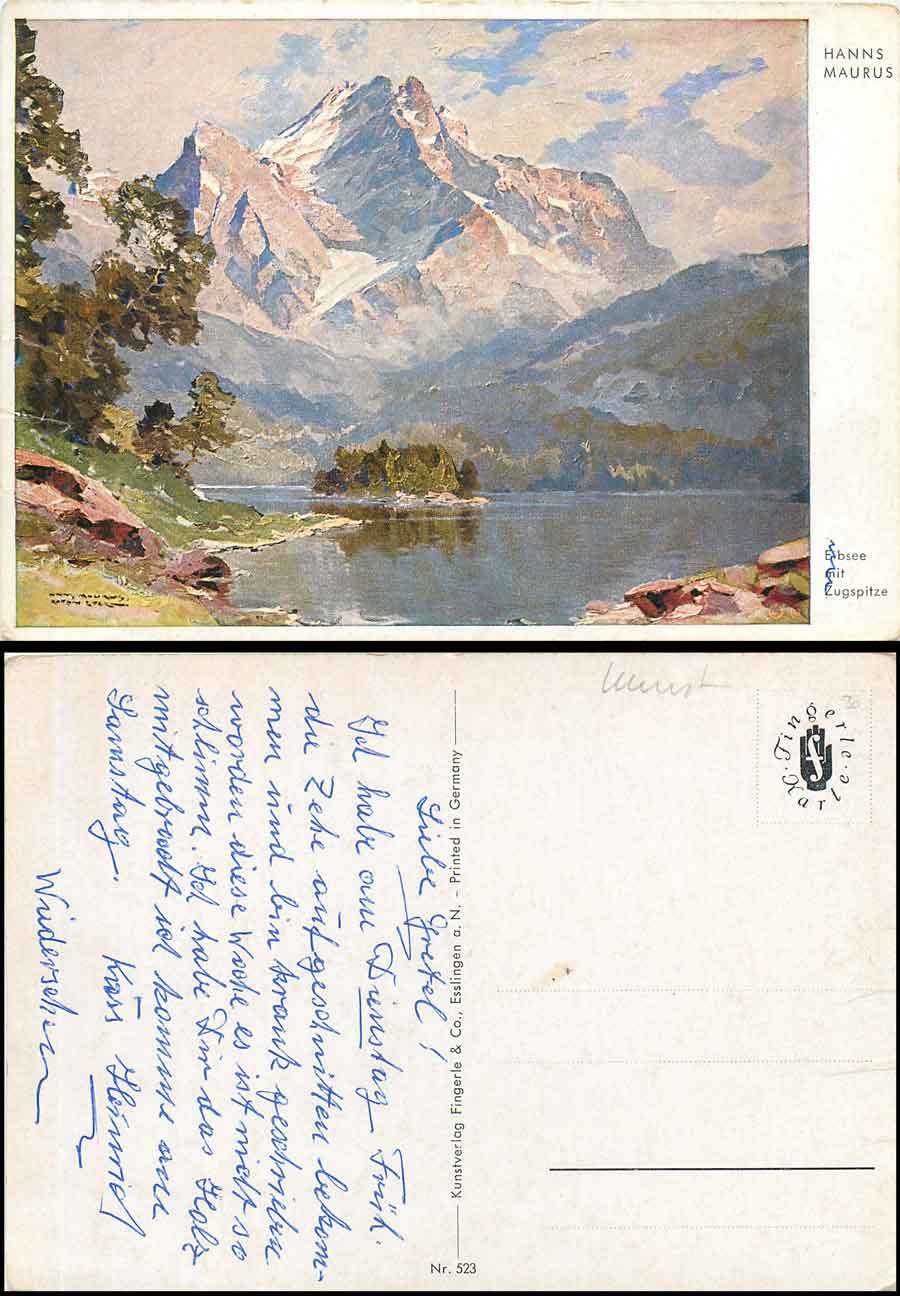 HANNS
MAURUS
Eibsee
mit
Zugspitze
HANNS MAURUS
Kunst
Fingerle
Karle
30
Kunstverlag Fingerle & Co., Esslingen a. N. - Printed in Germany
Nr. 523
Liebe Gretel!
Ich habe am Dienstag Früh.
die Zehe aufgeschnitten bekom-
men und bin krank geschrieben
worden diese Woche es ist nicht so
schlimm. Ich habe Dir das Holz
mitgebracht ich komme am
Samstag.
Wiedersehen